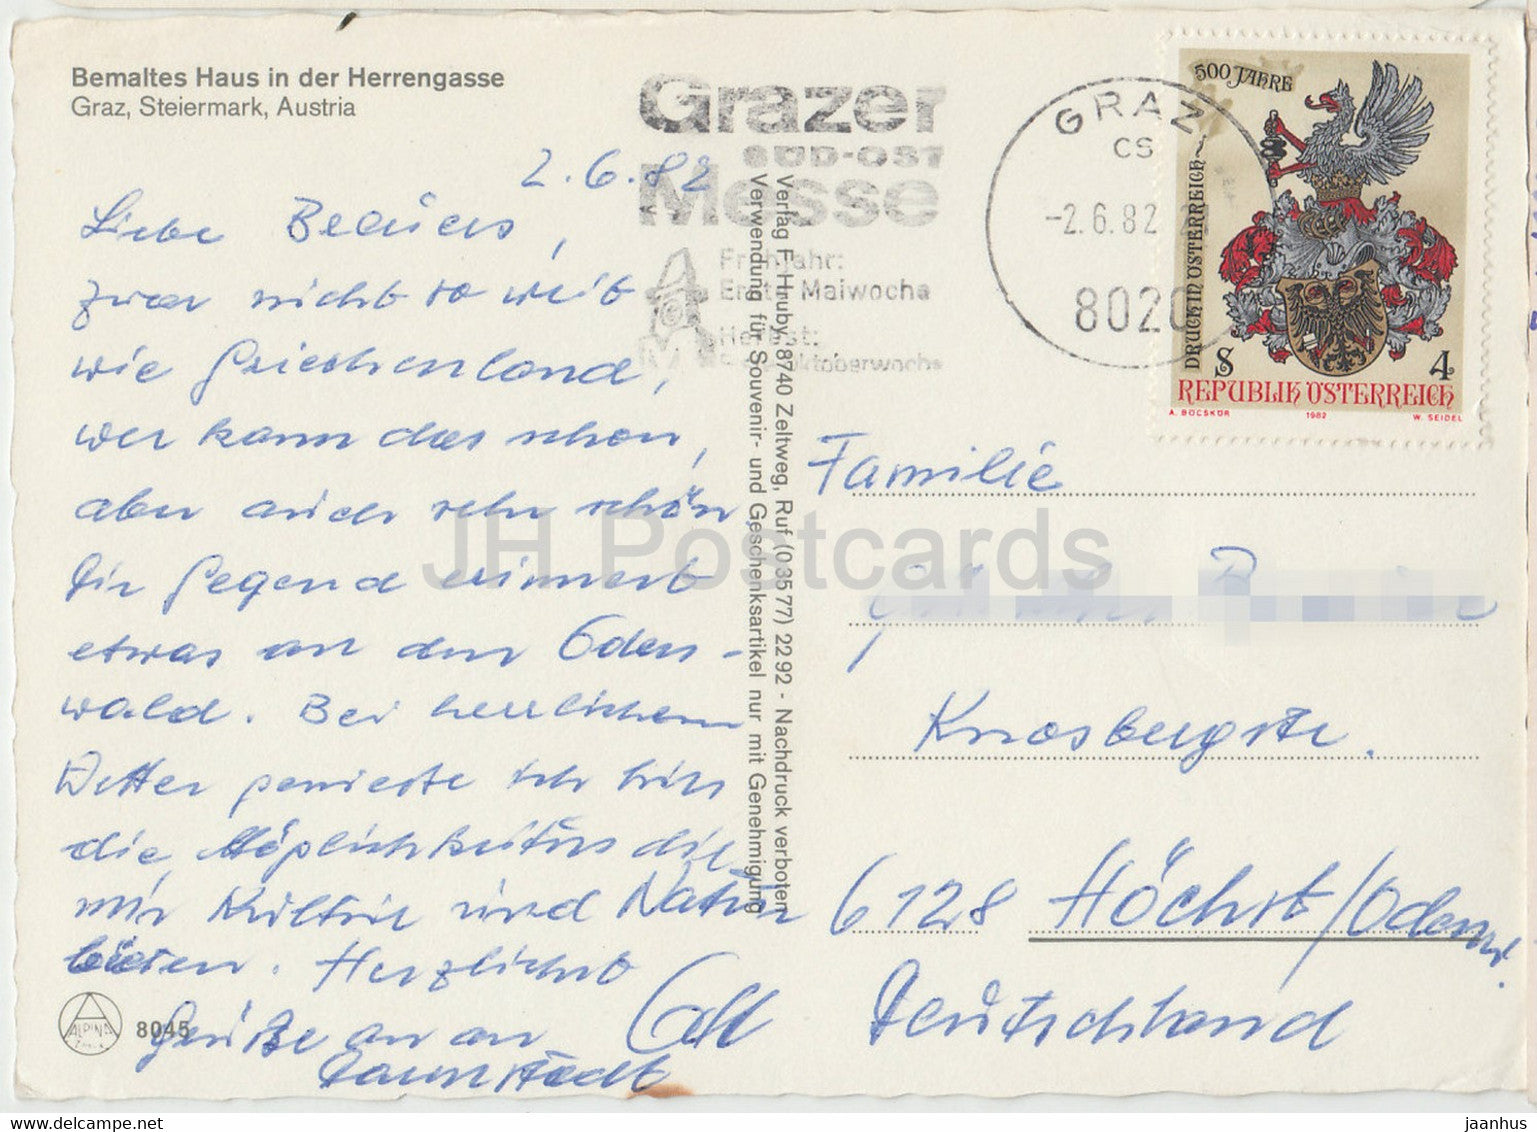 Bemaltes Haus in der Herrengasse
Graz, Steiermark, Austria
2.6.82
Liebe
zwar nicht so weit
wie Griechenland,
wer kann das schon,
aber auch sehr schön.
Die Gegend erinnert
etwas an den Oden-
wald. Bei herrlichem
Wetter genieße ich hier
die Möglichkeiten die
mir Kultur und Natur
bieten. Herzlichst
Grüße an
8045
ALPINA
Verlag F. Hruby, 8740 Zeltweg, Ruf (03577) 2292 - Nachdruck verboten
Verwendung für Souvenir- und Geschenksartikel nur mit Genehmigung
Grazer
SÜD-OST
Messe
Frühjahr:
Erste Maiwoche
Herbst:
Oktoberwoche
GRAZ
CS
-2.6.82
8020
500 JAHRE
DRUCK IN ÖSTERREICH
S 4
REPUBLIK ÖSTERREICH
A. BÖCSKÖR 1982 W. SEIDEL
Familie
Knosbergstr.
6128 Höchst/Odenw.
Deutschland
JH Postcards
delcampe.net
jaanhus